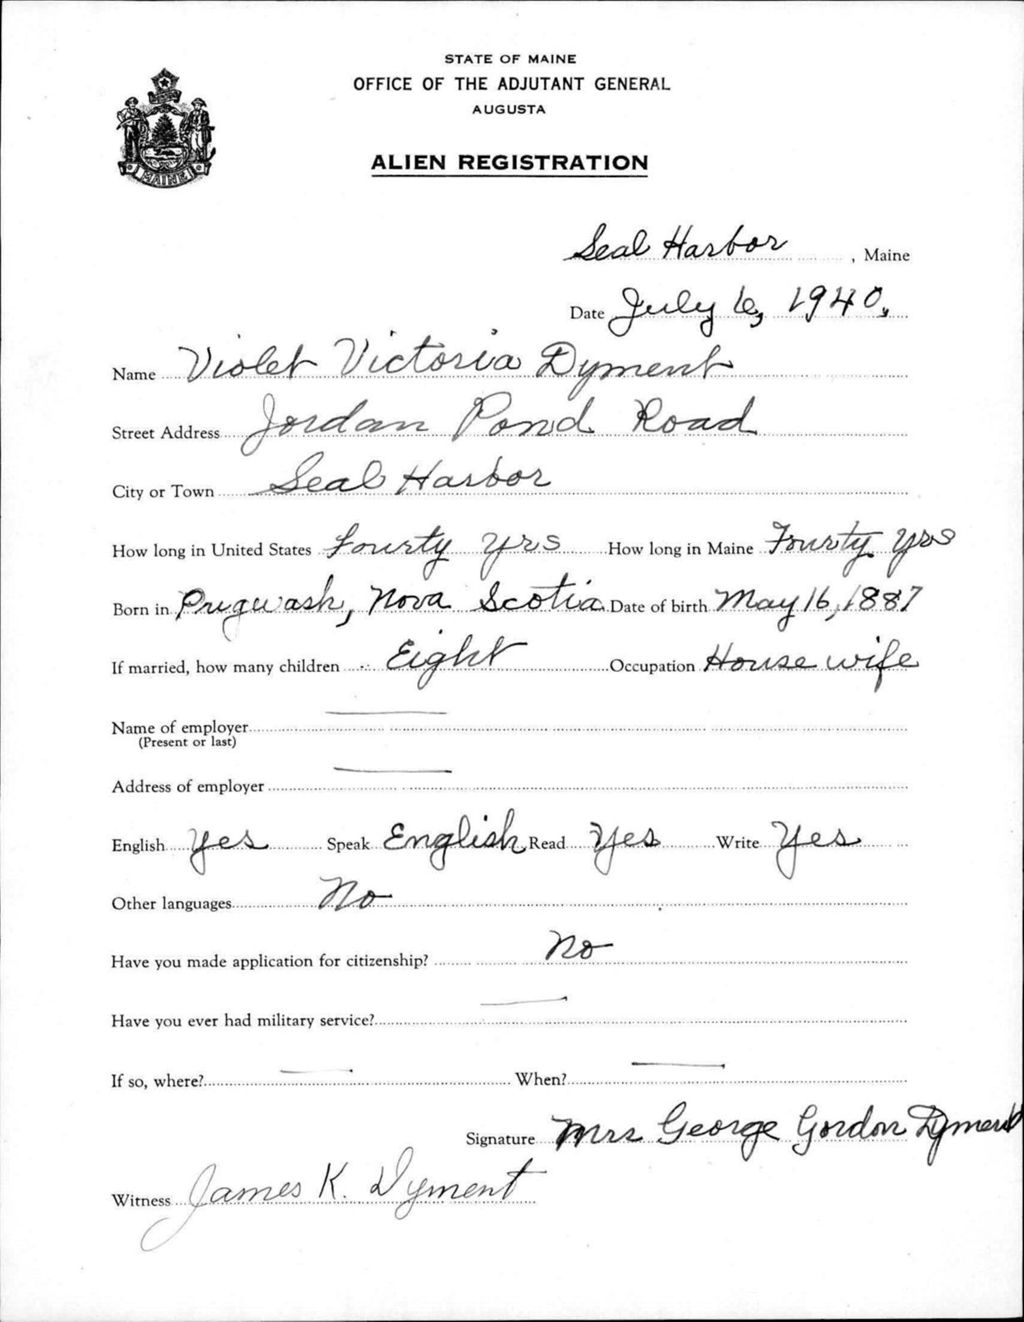 STATE OF MAINE
OFFICE OF THE ADJUTANT GENERAL
AUGUSTA
ALIEN REGISTRATION
MAINE
Seal Harbor, Maine
Date July 6, 1940.
Name Violet Victoria Dyment
Street Address Jordan Pond Road
City or Town Seal Harbor
How long in United States Fourty yrs How long in Maine Fourty yrs
Born in Pugwash, Nova Scotia Date of birth May 16, 1887
If married, how many children Eight Occupation House wife
Name of employer
(Present or last)
Address of employer
English Yes Speak English Read Yes Write Yes
Other languages No
Have you made application for citizenship? No
Have you ever had military service?
If so, where? When?
Signature Mrs George Gordon Dyment
Witness James K. Dyment